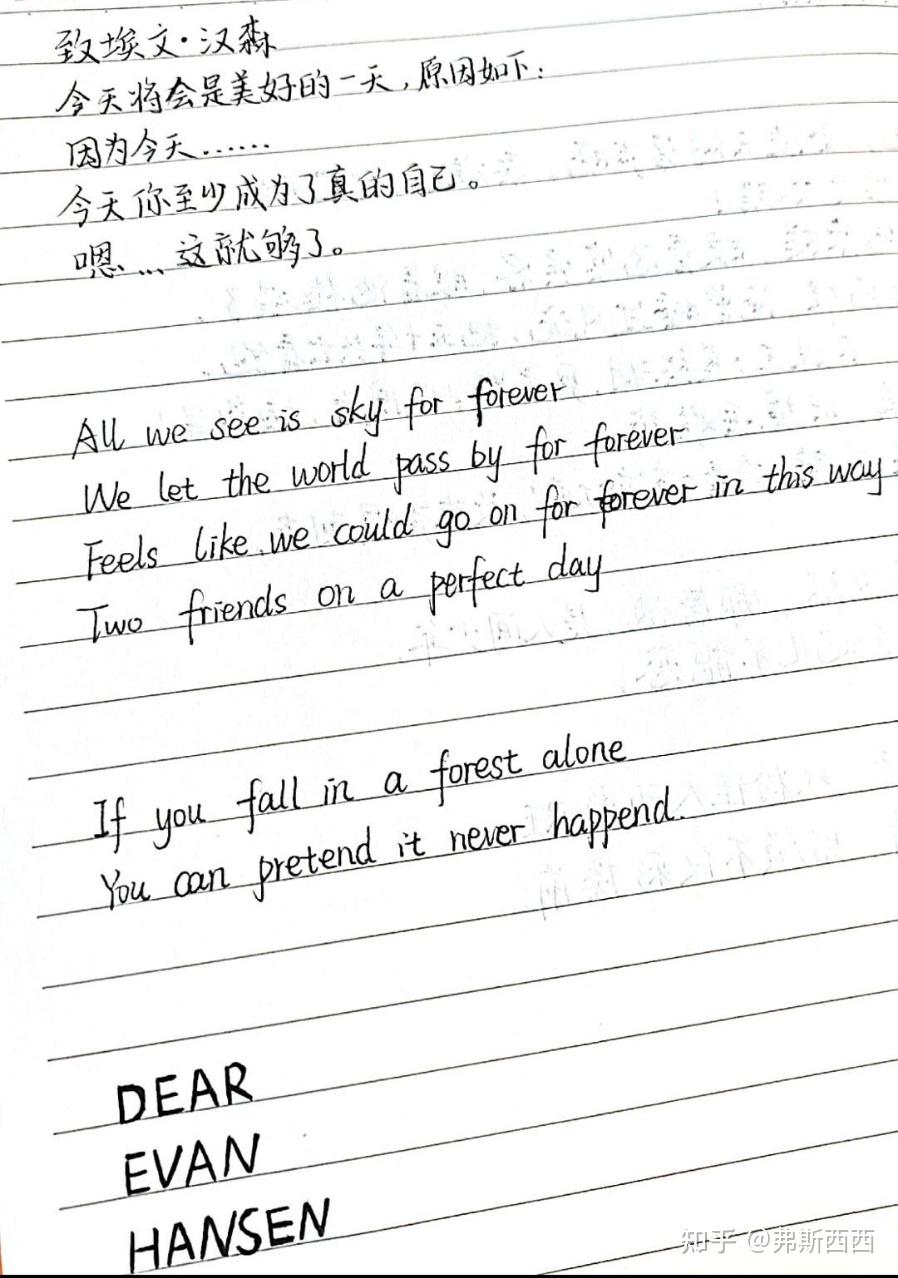 致埃文·汉森
今天将会是美好的一天,原因如下:
因为今天……
今天你至少成为了真的自己。
嗯...这就够了。
All we see is sky for forever
We let the world pass by for forever
Feels like we could go on for forever in this way
Two friends on a perfect day
If you fall in a forest alone
You can pretend it never happend.
DEAR
EVAN
HANSEN
知乎 @弗斯西西